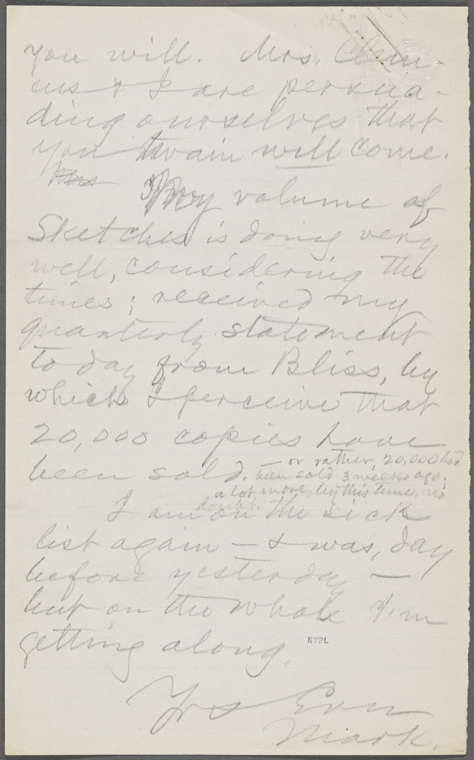 you will. Mrs. Clem-
ens & I are persua-
ding ourselves that
you twain will come.
My volume of
Sketches is doing very
well, considering the
times; received my
quarterly statement
to-day from Bliss, by
which I perceive that
20,000 copies have
been sold. or rather, 20,000 had
been sold 3 weeks ago.
a lot more, by this time, no
doubt.
I am on the sick
list again — & was, day
before yesterday —
but on the whole I'm
getting along.
NYPL
Yrs Ever
Mark.